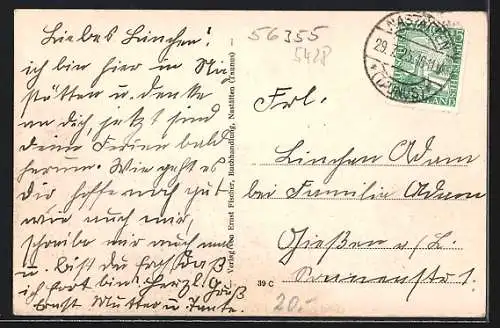 Liebes Linchen!
ich bin hier in Na
stätten u. denke
an dich, jetzt sind
deine Ferien bald
herum. Wie geht es
dir hoffe noch gut
wie auch mir,
schreibe mir auch mal
u. bist du
ich fort bin herzl. Gruß
Ernst Mutter u. Tante.
Verlag von Ernst Fischer, Buchhandlung, Nastätten (Taunus)
39 C
56355
5428
NASTÄTTEN
29.7.25
(TAUNUS)
Frl.
Linchen Adam
bei Familie Adam
Gießen a/L.
Sonnenstr 1.
20,-